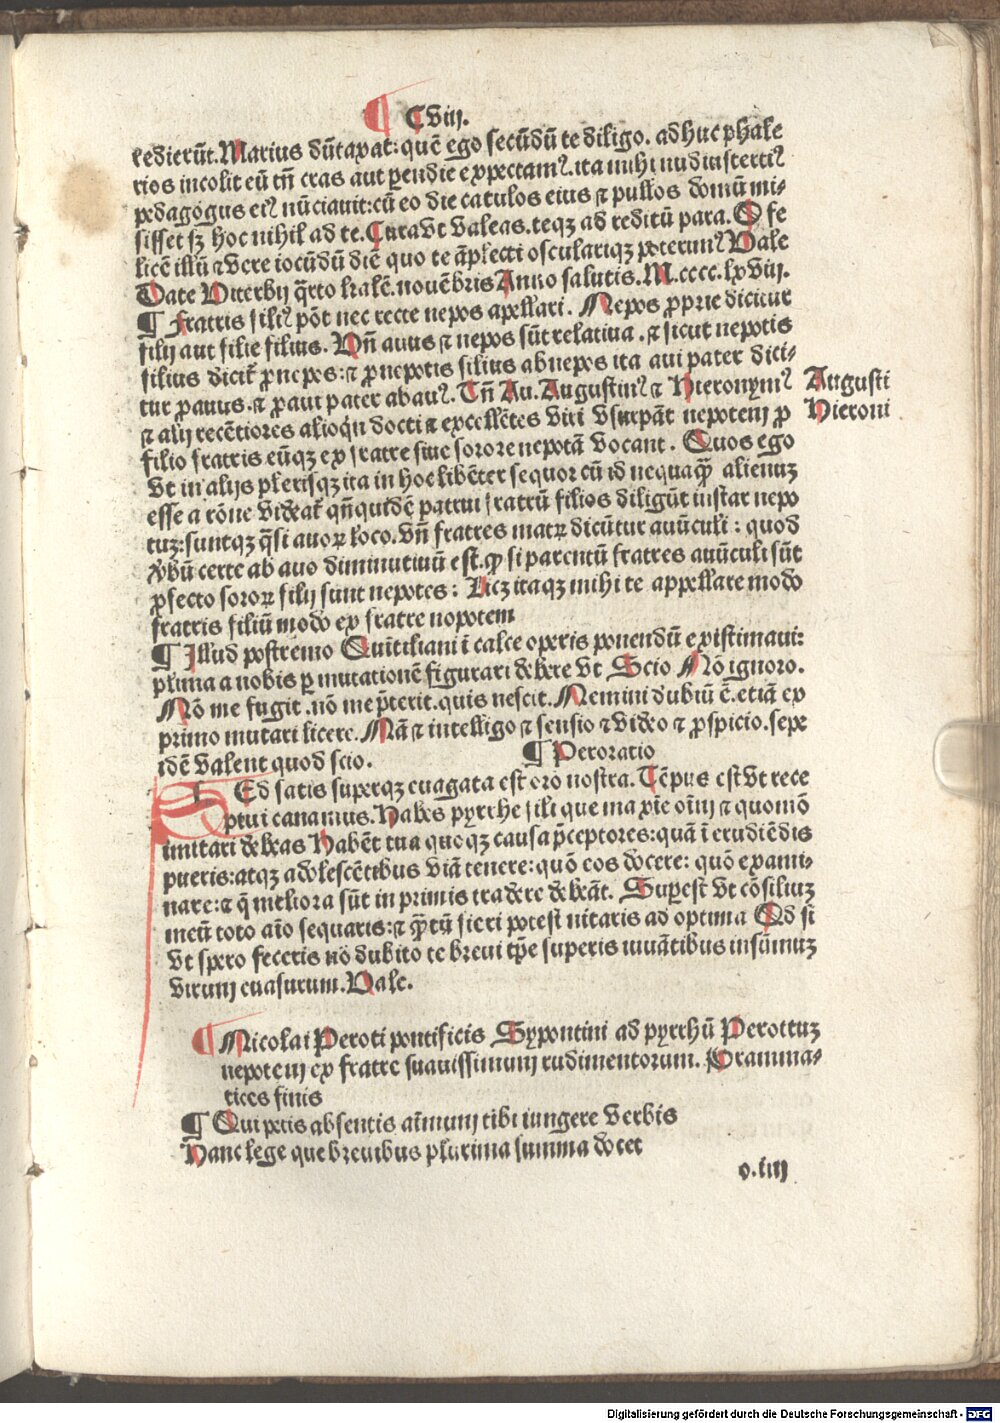 ¶ CViij.
redierūt. Marius dūtaxat: quē ego secūdū te diligo. adhuc phale
rios incolit eū tñ cras aut perendie expectamꝰ. ita mihi nudiustertiꝰ
pedagogus eiꝰ nūciauit: cū eo die catulos eius ⁊ pullos domū mi-
sisset sꝫ hoc nihil ad te. Cura vt valeas. teqꝫ ad reditū para. O fe
licē illū ⁊ vere iocūdū diē quo te āplecti oscularique poterimꝰ Vale
Date Viterbij q̄rto kalē. nouēbris Anno salutis. M.cccc.lxviij.
¶ Fratris filiꝰ pōt nec recte nepos apellari. Nepos ꝓprie dicitur
filij aut filie filius. Vñ auus ⁊ nepos sūt relatiua. ⁊ sicut nepotis
filius dicit̄ ꝓnepos: ⁊ ꝓnepotis filius abnepos ita aui pater dici-
tur ꝓauus. ⁊ ꝓaui pater abauꝰ. Tñ Au. Augustinꝰ ⁊ Hieronymꝰ
⁊ alij recētiores alioqn docti ⁊ excellētes viri vsurpāt nepotem ꝓ
filio fratris eūqꝫ ex fratre siue sorore nepotā vocant. Quos ego
vt in alijs plerisqꝫ ita in hoc libēter sequor cū id nequaq̄ȝ alienuꝫ
esse a rōne videat̄ qñquidē patrui fratrū filios diligūt instar nepo
tuꝫ: suntqꝫ q̄si auoꝝ loco. vñ fratres matꝝ dicūtur auūculi: quod
v̄bū certe ab auo diminutiuū est. ꝙ si parentū fratres auūculi sūt
ꝓfecto soroꝝ filij sunt nepotes: Licꝫ itaqꝫ mihi te appellare modo
fratris filiū modo ex fratre nopotem
¶ Illud postremo Quītiliani ī calce operis ponendū existimaui:
plima a nobis ꝑ mutationē figurari debere vt Scio Nō ignoro.
Nō me fugit. nō me p̄terit. quis nescit. Nemini dubiū ē. etiā ex
primo mutari licere. Nā ⁊ intelligo ⁊ sensio ⁊ video ⁊ ꝓspicio. sepe
idē valent quod scio.
¶ Peroratio
SEd satis superqꝫ euagata est oro nostra. Tēpus est vt rece
ptui canamus. Habes pyrrhe fili que maxīe oīm ⁊ quomō
imitari debeas Habēt tua quoqꝫ causa p̄ceptores: quā ī erudiēdis
pueris: atqꝫ adolescētibus viā tenere: quō eos docere: quō exami-
nare: ⁊ q̄ meliora sūt in primis tradere debeāt. Supest vt cōsiliuꝫ
meū toto aīo sequaris: ⁊ q̄ȝtū fieri potest nitaris ad optima Qd si
vt spero feceris nō dubito te breui tp̄e superis iuuātibus insūmuꝫ
virum euasurum. Vale.
¶ Nicolai Peroti pontificis Sypontini ad pyrrhū Perottuꝫ
nepotem ex fratre suauissimum rudimentorum. Gramma-
tices finis
¶ Qui petis absentis aīmum tibi iungere verbis
Hanc lege que breuibus plurima summa docet
o.iiij
Augusti
Hieroni
Digitalisierung gefördert durch die Deutsche Forschungsgemeinschaft - DFG